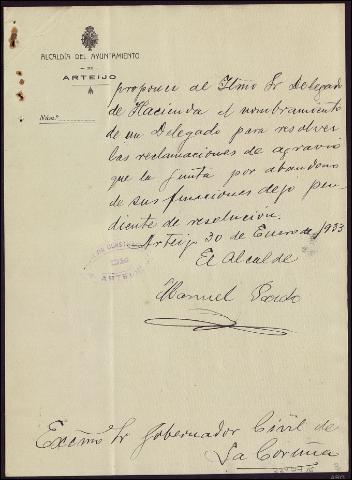 ALCALDÍA DEL AYUNTAMIENTO
DE
ARTEIJO
Núm.
proponer al Iltmo Sr Delegado
de Hacienda el nombramiento
de un Delegado para resolver
las reclamaciones de agravio
que la Junta por abandono
de sus funciones dejo pen-
diente de resolución.
Arteijo 30 de Enero de 1933
El Alcalde
Manuel Pardo
ARTEIJO
Excmo Sr Gobernador Civil de
La Coruña